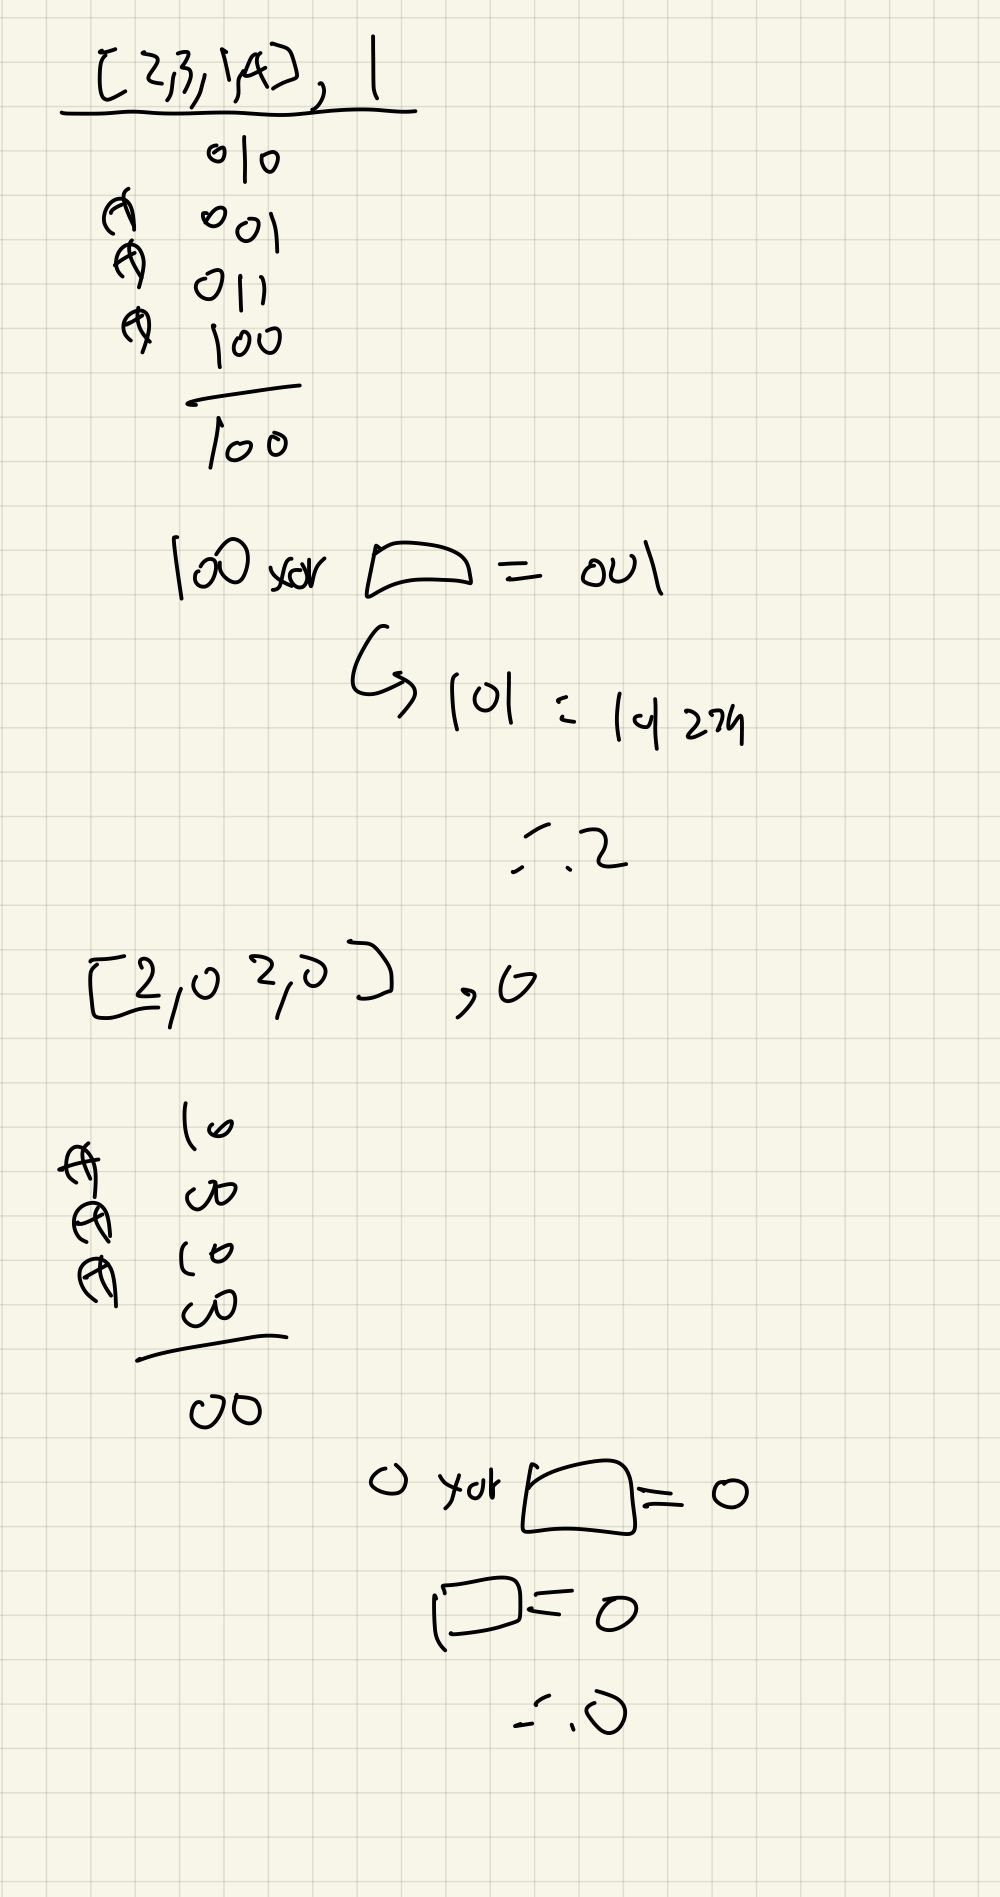 [2,3,1,4], 1
010
001
011
100
100
100 xor = 001
101 = 1이 2개
∴ 2
[2,0 2,0], 0
10
00
10
00
00
0 xor = 0
= 0
∴ 0